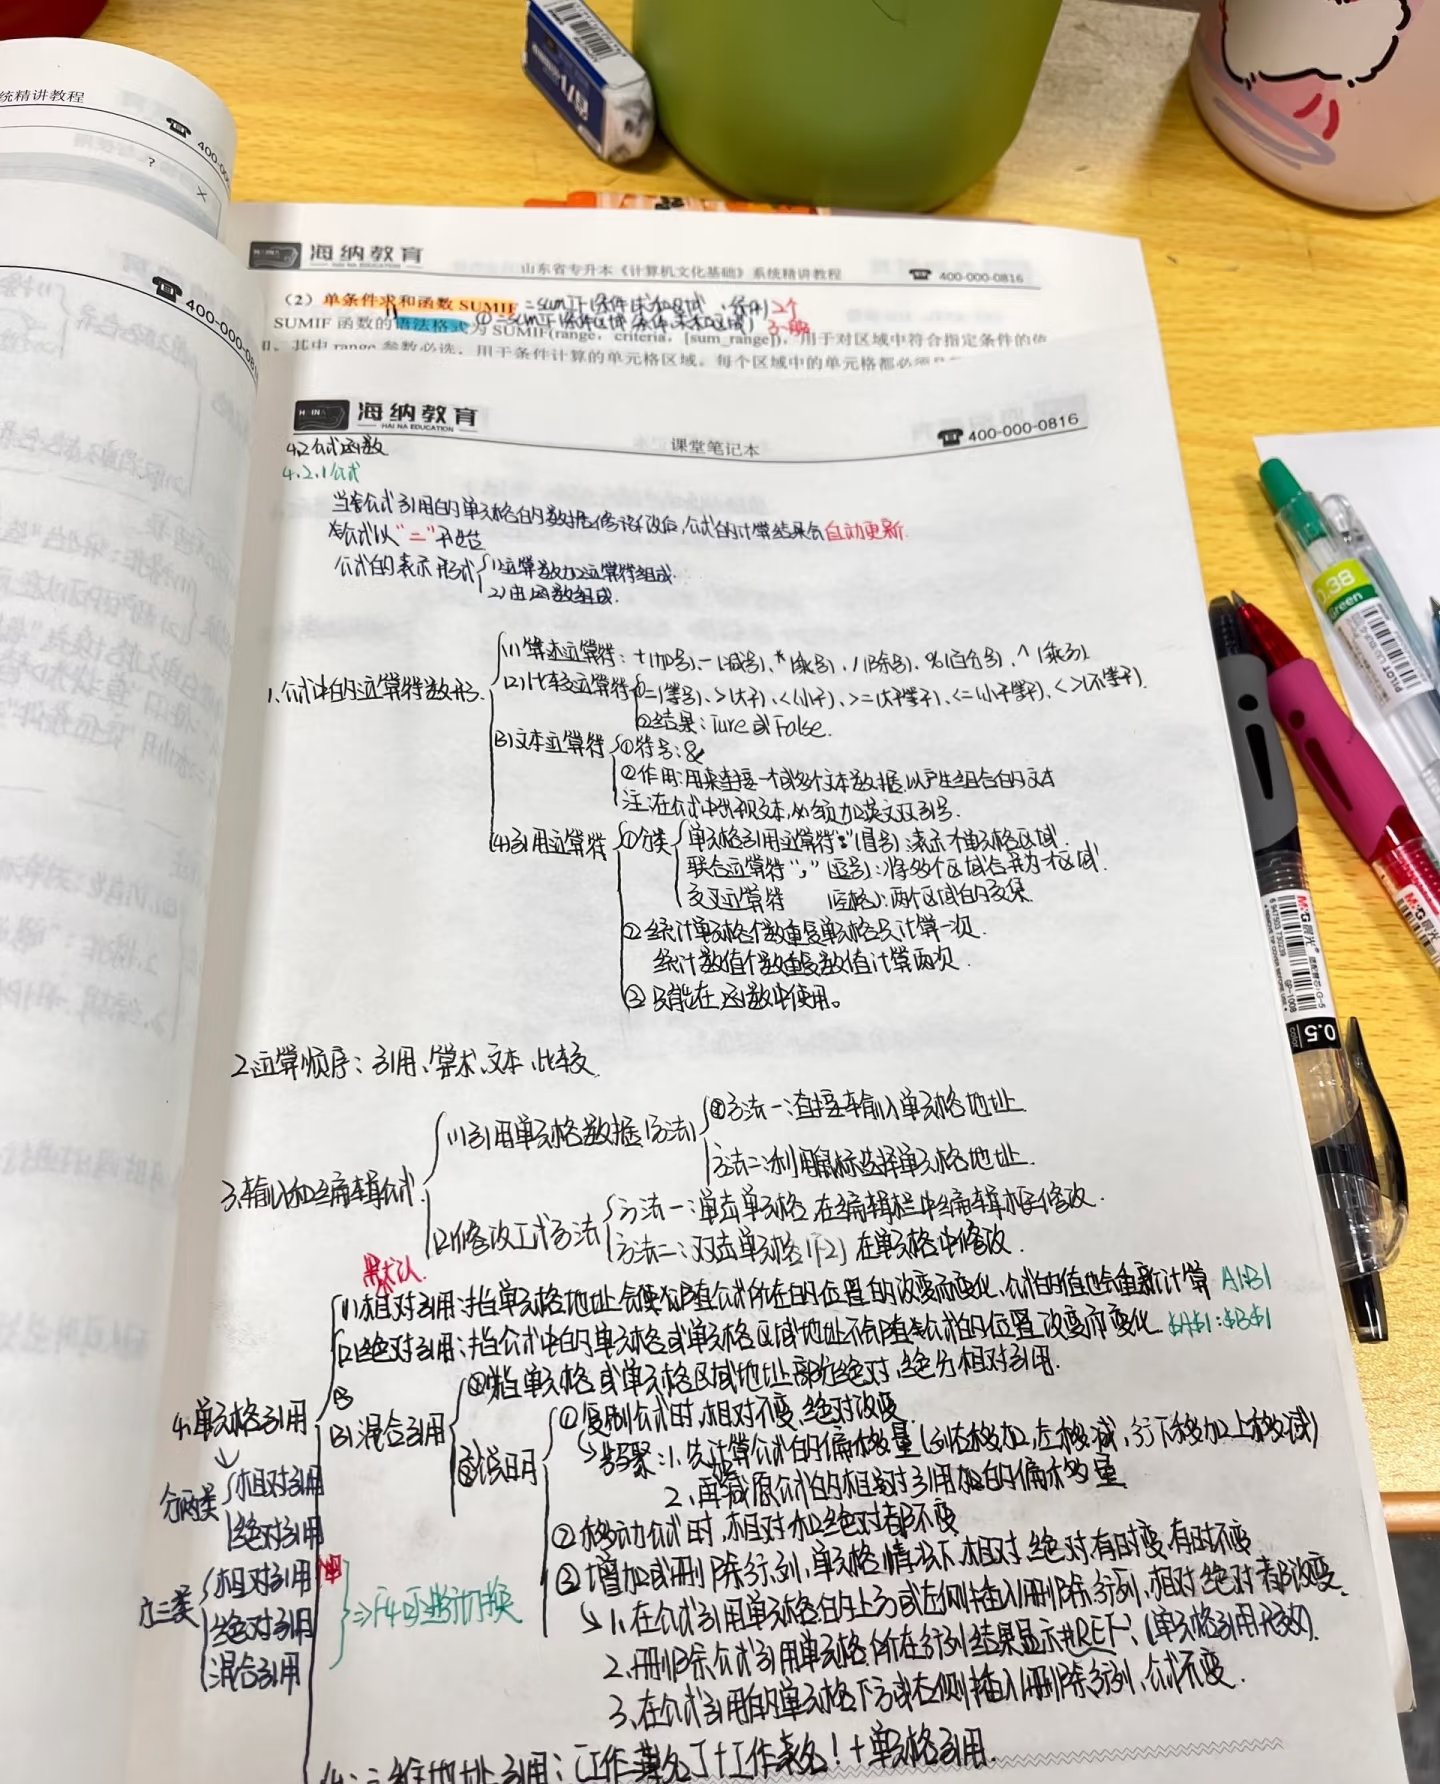 统精讲教程
400-00
?
400-000-081
海纳教育
HAI NA EDUCATION
山东省专升本《计算机文化基础》系统精讲教程
400-000-0816
(2)单条件求和函数 SUMIF =SUMIF(条件求和区域,条件)2个
①=SUMIF(条件区域,条件,求和区域)
SUMIF 函数的语法格式为 SUMIF(range, criteria, [sum_range]),用于对区域中符合指定条件的值
其中 range 参数必选,用于条件计算的单元格区域。每个区域中的单元格都必须
海纳教育
HAI NA EDUCATION
课堂笔记本
400-000-0816
4.2公式函数
4.2.1公式
当公式引用的单元格的数据修改后,公式的计算结果会自动更新.
公式以"="开始
公式的表示形式 1)运算数和运算符组成.
2)由函数组成.
1.公式中的运算符数形.
(1)算术运算符:+(加号)、-(减号)、*(乘号)、/(除号)、%(百分号)、^(乘方).
(2)比较运算符 ①=(等号)、>(大于)、<(小于)、>=(大于等于)、<=(小于等于)、<>(不等于).
②结果:Ture或False.
(3)文本运算符 ①符号:&
②作用:用来连接一个或多个文本数据,以产生组合的文本
注:在公式中出现文本,必须加英文双引号.
(4)引用运算符 ①分类 单元格引用运算符":"(冒号):表示一个单元格区域.
联合运算符","(逗号):将多个区域合并为一个区域.
交叉运算符 (空格):两个区域的交集.
②统计单元格个数重复单元格只计算一次.
统计数值个数重复数值计算两次.
③只能在函数中使用。
2.运算顺序:引用、算术、文本、比较.
3.输入和编辑公式
(1)引用单元格数据(方法) 方法一:直接输入单元格地址.
方法二:利用鼠标选择单元格地址.
(2)修改公式方法 方法一:单击单元格,在编辑栏中编辑框修改.
方法二:双击单元格(F2)在单元格中修改.
默认.
(1)相对引用:指单元格地址会随公式所在的位置的改变而变化,公式的值也会重新计算 A1:B1
(2)绝对引用:指公式中的单元格或单元格区域地址不会随公式的位置改变而变化. $A$1:$B$1
4.单元格引用
(3)混合引用 ①指单元格或单元格区域地址部分绝对,部分相对引用.
②说明 ①复制公式时,相对不变,绝对改变
步骤:1.先计算公式的偏移量(列右移加,左移减,行下移加上移减)
2.再减原公式的相对引用加的偏移量
②移动公式时,相对和绝对都不变
③增加或删除行列,单元格情况下,相对、绝对有时变,有时不变
1.在公式引用单元格的上方或左侧插入删除行列,相对绝对都改变.
2.删除公式引用单元格所在行列结果显示#REF!(单元格引用无效).
3.在公式引用的单元格下方或右侧插入删除行列,公式不变.
分两类 相对引用
绝对引用
分三类 相对引用
绝对引用
混合引用
⇒F4可进行切换
(4)三维地址引用:[工作簿名]+工作表名!+单元格引用.
0.38
Green
PILOT
M&G 晨光
0.5